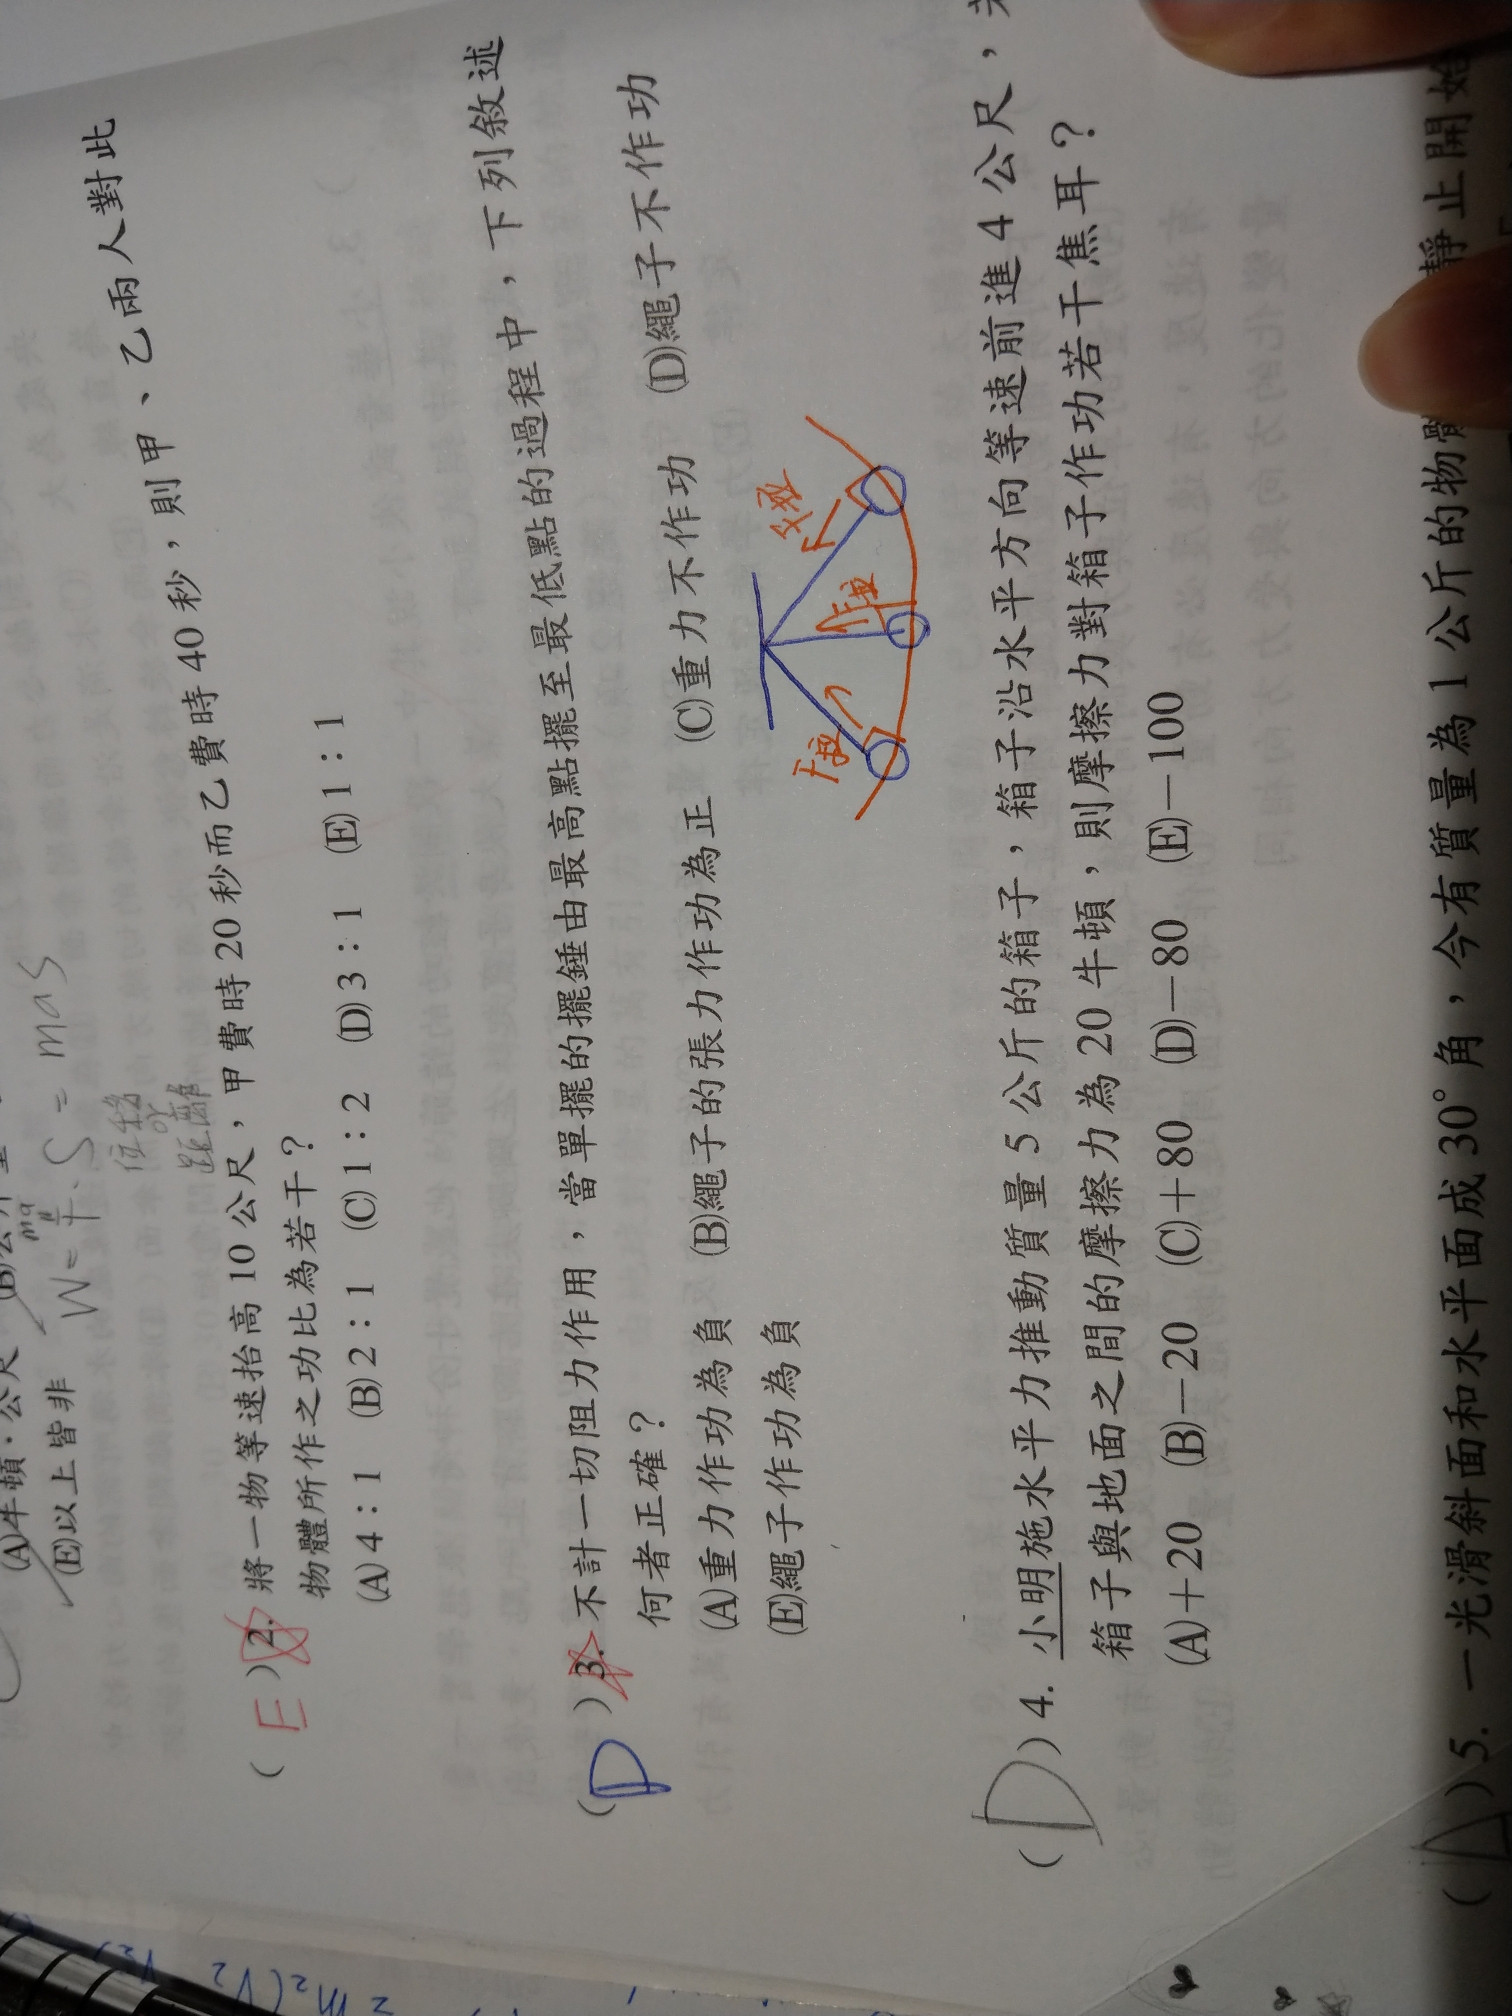 (A)牛頓·公尺
(E)以上皆非
W = F·S = maS
ma
位移
or
距離
( E )2. 將一物等速抬高 10 公尺，甲費時 20 秒而乙費時 40 秒，則甲、乙兩人對此
物體所作之功比為若干？
(A) 4：1 (B) 2：1 (C) 1：2 (D) 3：1 (E) 1：1
( D )3. 不計一切阻力作用，當單擺的擺錘由最高點擺至最低點的過程中，下列敘述
何者正確？
(A)重力作功為負 (B)繩子的張力作功為正 (C)重力不作功 (D)繩子不作功
(E)繩子作功為負
( D )4. 小明施水平力推動質量 5 公斤的箱子，箱子沿水平方向等速前進 4 公尺，若
箱子與地面之間的摩擦力為 20 牛頓，則摩擦力對箱子作功若干焦耳？
(A)＋20 (B)－20 (C)＋80 (D)－80 (E)－100
)5. 一光滑斜面和水平面成 30° 角，今有質量為 1 公斤的物體 靜止開始